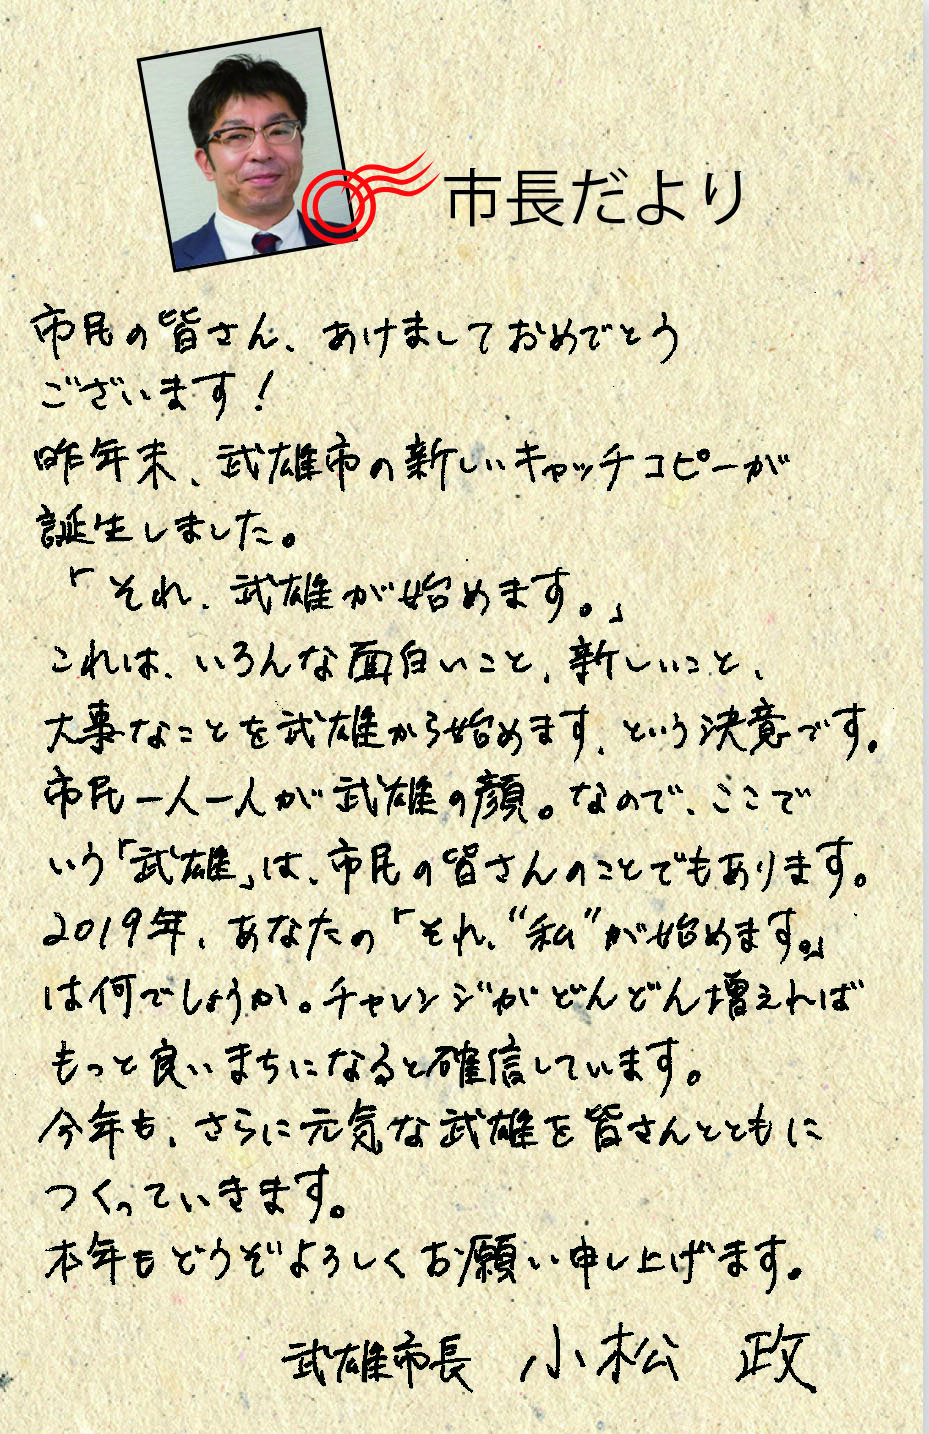 市長だより
市民の皆さん、あけましておめでとう
ございます!
昨年末、武雄市の新しいキャッチコピーが
誕生しました。
「それ、武雄が始めます。」
これは、いろんな面白いこと、新しいこと、
大事なことを武雄から始めます、という決意です。
市民一人一人が武雄の顔。なので、ここで
いう「武雄」は、市民の皆さんのことでもあります。
2019年、あなたの「それ、“私”が始めます。」
は何でしょうか。チャレンジがどんどん増えれば
もっと良いまちになると確信しています。
今年も、さらに元気な武雄を皆さんとともに
つくっていきます。
本年もどうぞよろしくお願い申し上げます。
武雄市長 小松 政